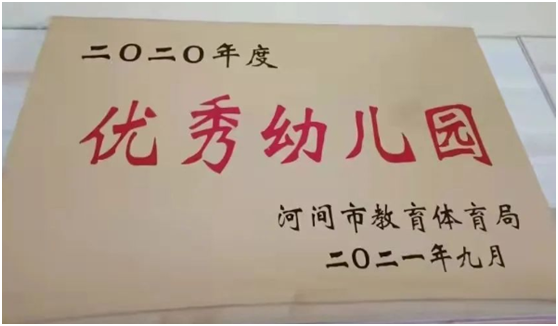 二〇二〇年度
优秀幼儿园
河间市教育体育局
二〇二一年九月